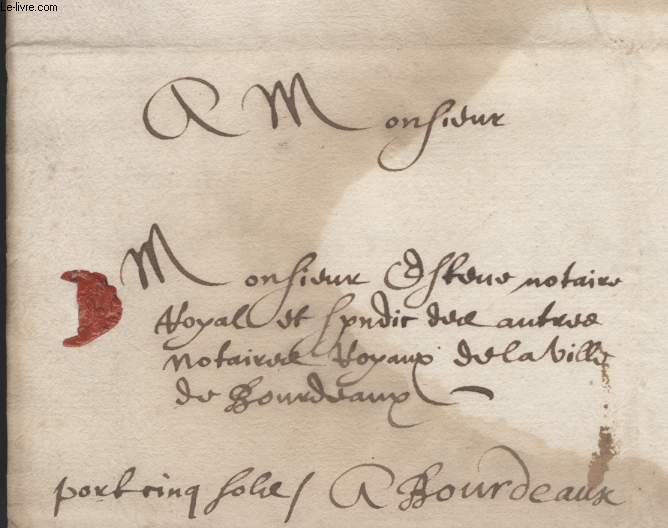 Le-livre.com
A Monsieur
Monsieur Esteve notaire
Royal et syndic des autres
notaires Royaux de la Ville
de Bourdeaux
port cinq sols / A Bourdeaux